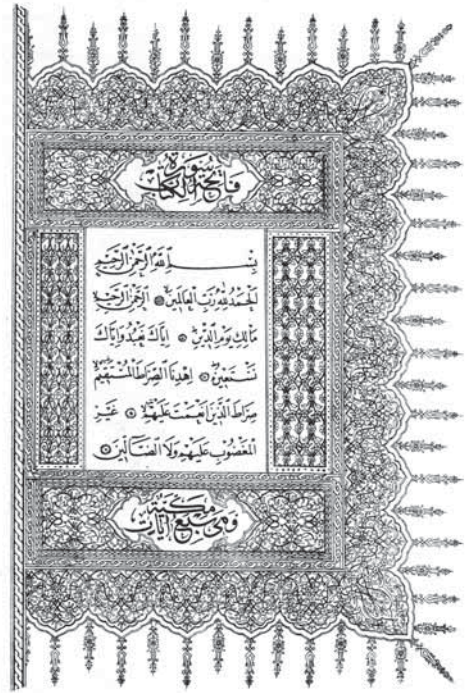 سورة فاتحة الكتاب
بِسْمِ ٱللَّهِ ٱلرَّحْمَٰنِ ٱلرَّحِيمِ
اَلْحَمْدُ لِلّٰهِ رَبِّ الْعَالَمِينَ ۝ اَلرَّحْمٰنِ الرَّحِيمِ
مَالِكِ يَوْمِ الدِّينِ ۝ اِيَّاكَ نَعْبُدُ وَاِيَّاكَ
نَسْتَعِينُ ۝ اِهْدِنَا الصِّرَاطَ الْمُسْتَقِيمَ
صِرَاطَ الَّذِينَ اَنْعَمْتَ عَلَيْهِمْ ۝ غَيْرِ
الْمَغْضُوبِ عَلَيْهِمْ وَلَا الضَّالِّينَ ۝
وهي سبع آيات مكية